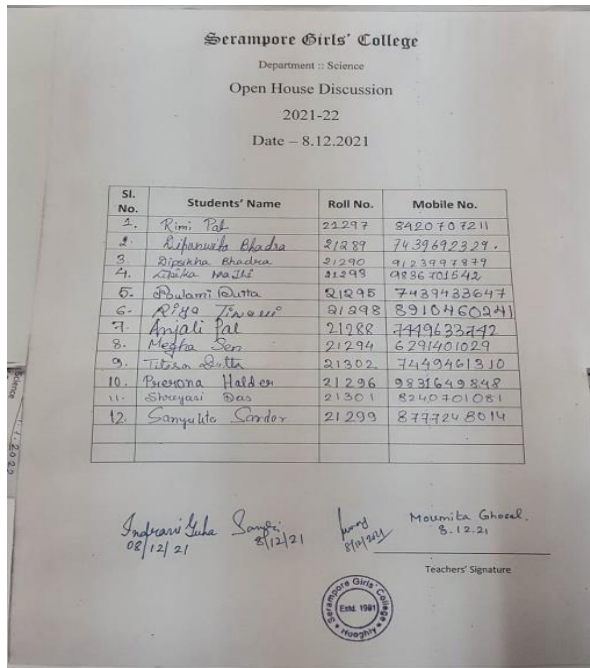 Serampore Girls' College
Department :: Science
Open House Discussion
2021-22
Date – 8.12.2021
Sl. No. Students' Name Roll No. Mobile No.
1. Rimi Pal 21297 8420707211
2. Dipanwita Bhadra 21289 7439692329.
3. Dipsikha Bhadra 21290 9123997879
4. Majhi 21293 9836701542
5. Pulami Dutta 21295 7439433647
6. Riya Tiwari 21298 8910460241
7. Anjali Pal 21288 7449633742
8. Megha Sen 21294 6291401029
9. Titisa Dutta 21302 7449461310
10. Prerona Halder 21296 9831649848
11. Shreyasi Das 21301 8240701081
12. Sanyukta Sardar 21299 8777248014
Indrani Guha
08/12/21
8/12/21
8/12/2021
Moumita Ghosal.
8.12.21
Teachers' Signature
Serampore Girls' College
Estd. 1981
Hooghly
Science